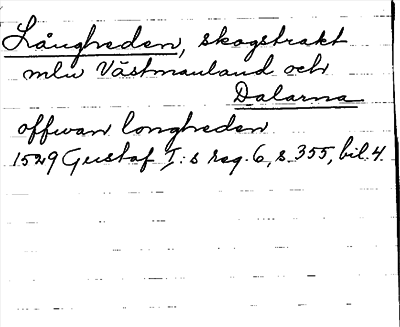 Långheden, skogstrakt
mlw Västmanland och
Dalarna
offwan longheden
1529 Gustaf I:s reg. 6, s. 355, bil. 4.